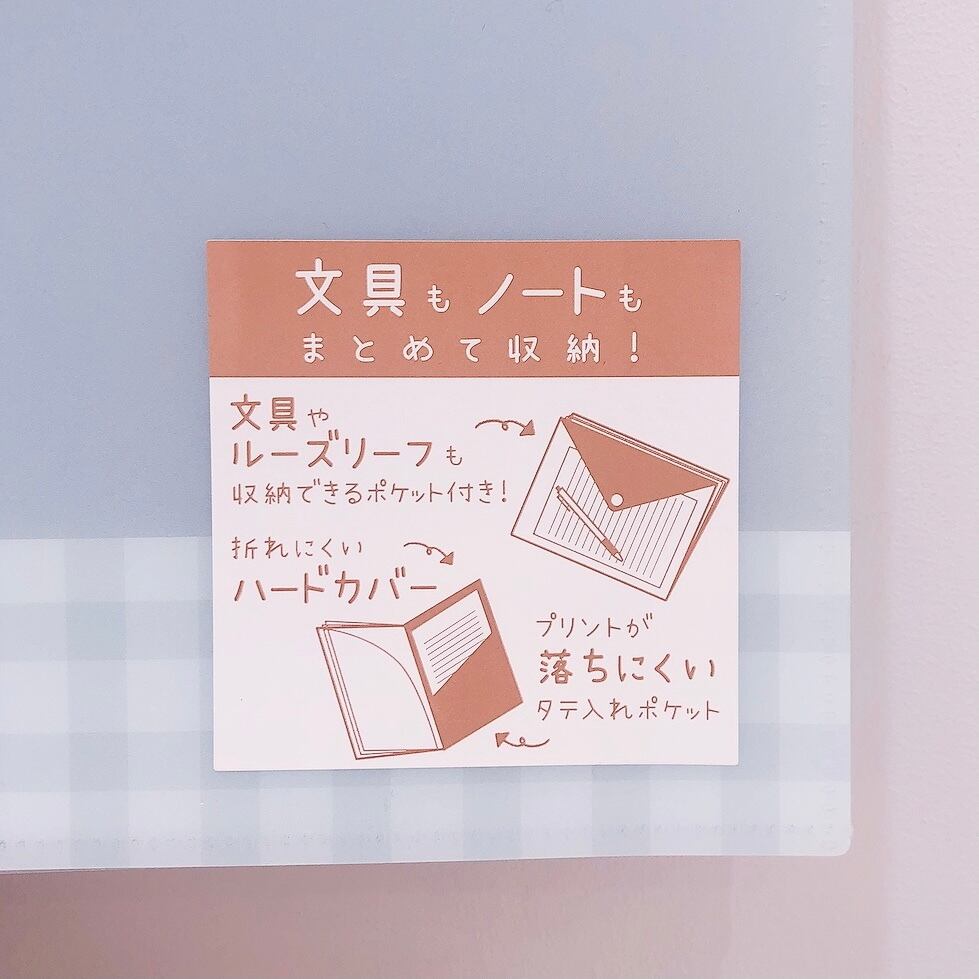 文具もノートも
まとめて収納!
文具や
ルーズリーフも
収納できるポケット付き!
折れにくい
ハードカバー
プリントが
落ちにくい
タテ入れポケット